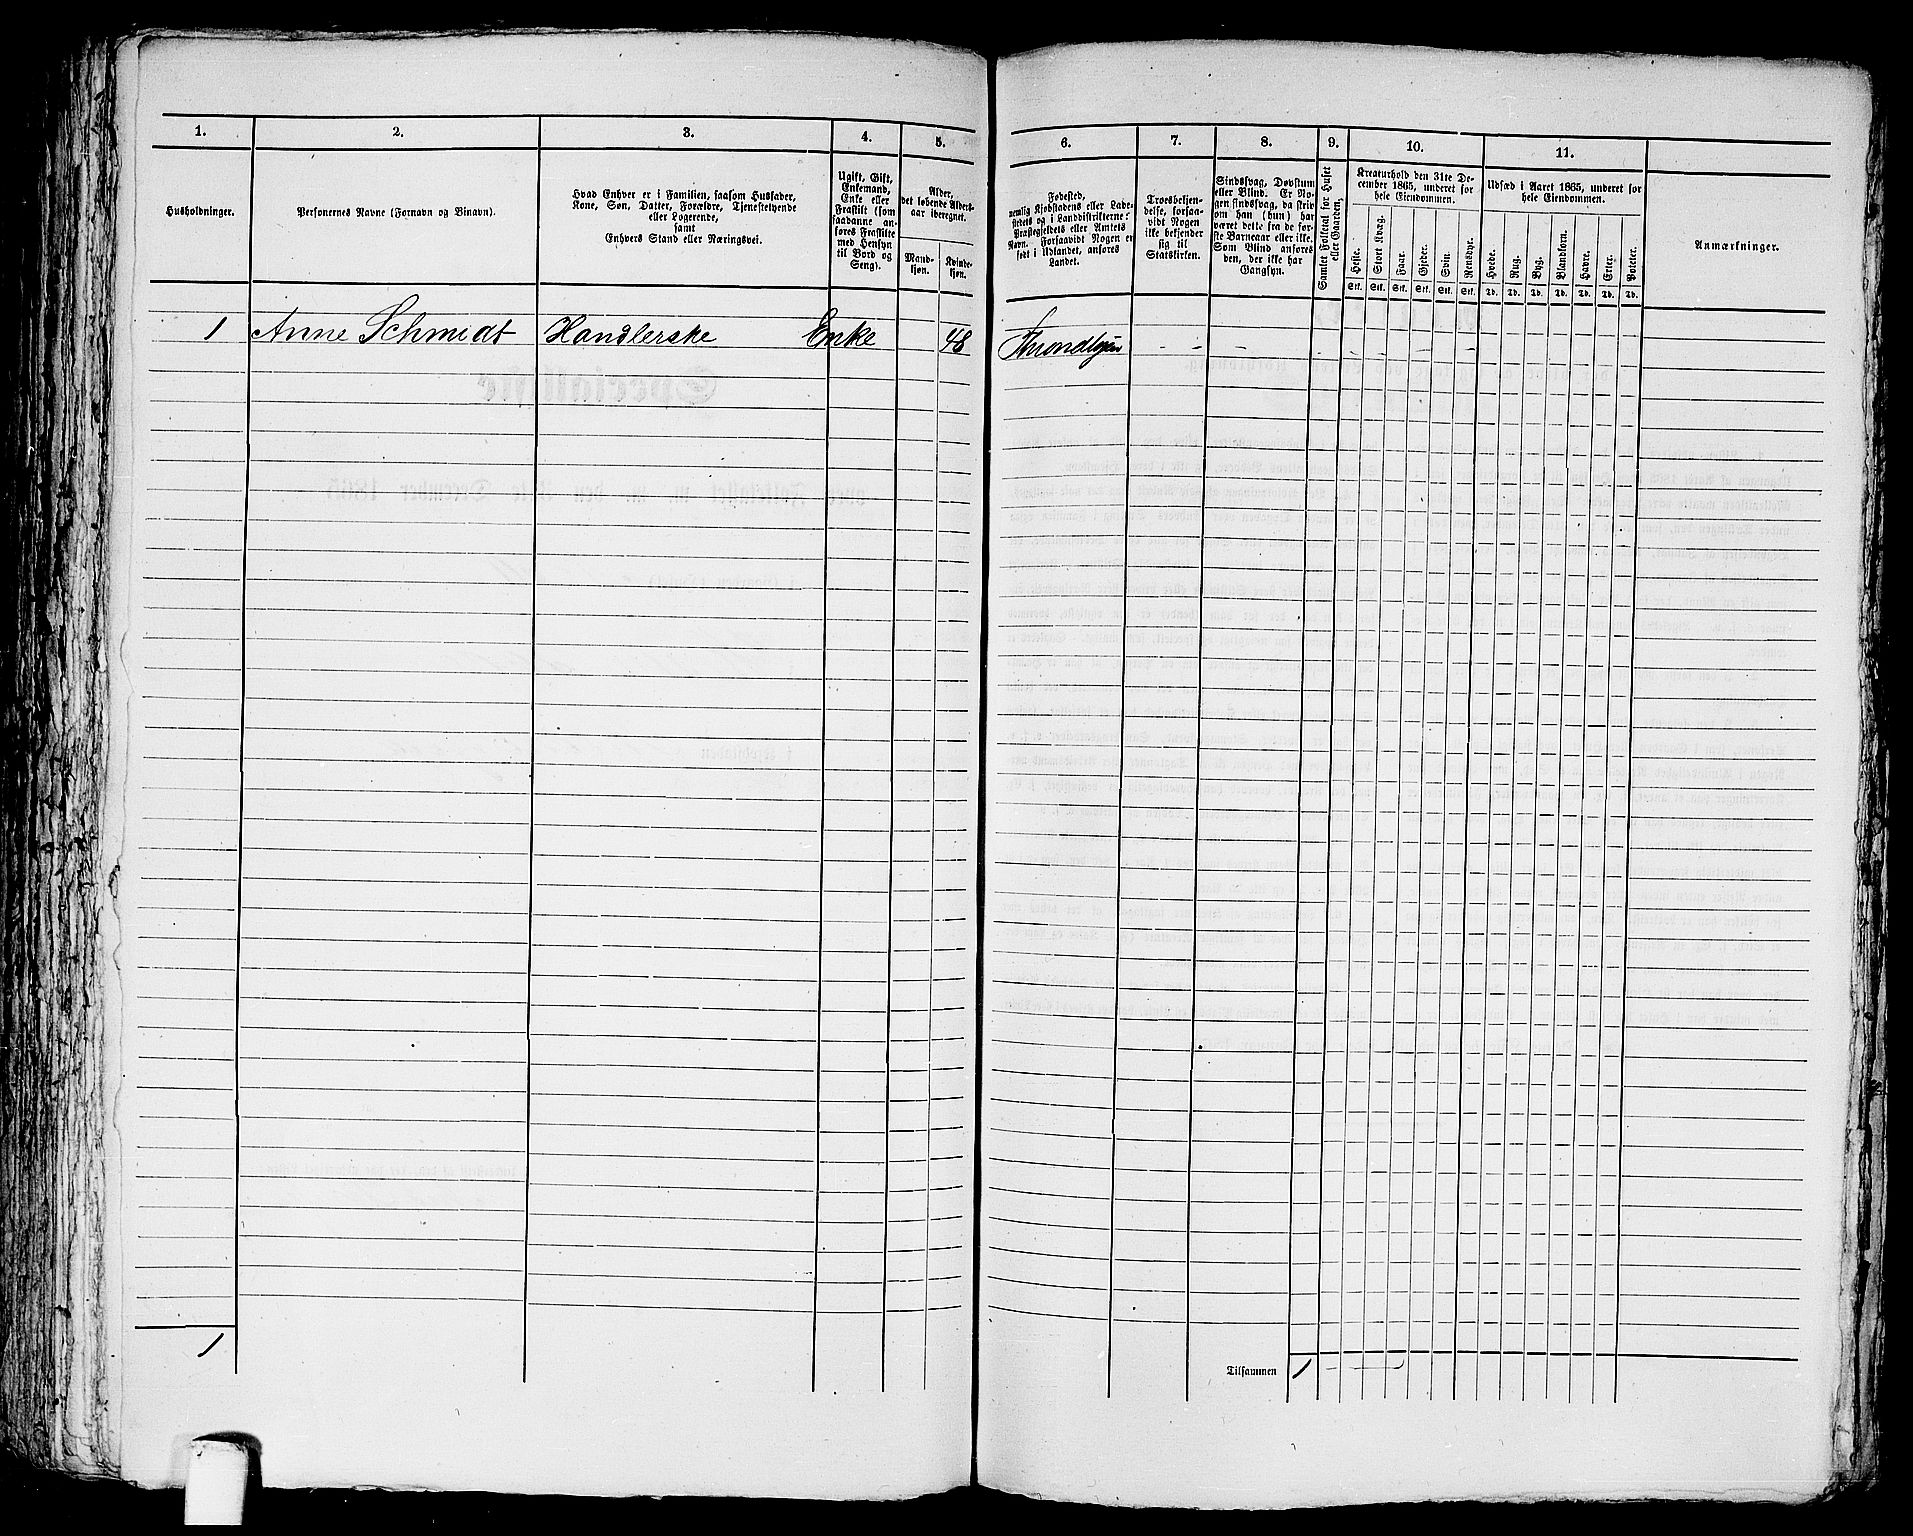 1. 2. 3. 4. 5. 6. 7. 8. 9. 10. 11.
Husholdninger.
Personernes Navne (Fornavn og Binavn).
Hvad Enhver er i Familien, saasom Husfader,
Kone, Søn, Datter, Forældre, Tjenestetyende
eller Logerende,
samt
Enhvers Stand eller Næringsvei.
Ugift, Gift,
Enkemand,
Enke eller
Fraskilt (som
saadanne an-
føres Fraskilte
med Hensyn
til Bord og
Seng).
Alder,
det løbende Alders-
aar iberegnet.
Mand-
kjøn.
Kvinde-
kjøn.
Fødested,
nemlig Kjøbstadens eller Lade-
stedets og i Landdistrikterne:
Præstegjeldets eller Amtets
Navn. Forsaavidt Nogen er
født i Udlandet, anføres
Landet.
Troesbekjen-
delse, forsaa-
vidt Nogen
ikke bekjender
sig til
Statskirken.
Sindssvag, Døvstum
eller Blind. Er No-
gen sindssvag, da skriv
om han (hun) har
været dette fra de før-
ste Barneaar eller ikke.
Som Blind anføres
den, der ikke har
Gangsyn.
Samlet Folketal for Huset
eller Gaarden.
Kreaturhold den 31te De-
cember 1865, underet for
hele Eiendommen.
Heste. Stort Kvæg. Faar. Gjeder. Svin. Rensdyr.
Stk. Stk. Stk. Stk. Stk. Stk.
Udsæd i Aaret 1865, underet for
hele Eiendommen.
Hvede. Rug. Byg. Blandkorn. Havre. Erter. Poteter.
Td. Td. Td. Td. Td. Td. Td.
Anmærkninger.
1 Anne Schmidt Handlerske Enke 48 Throndhjem - - - - - - - -
1
Tilsammen 1